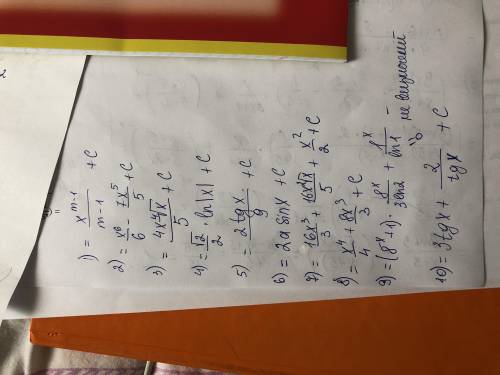 1) = x^{m-1}/(m-1) + C
2) = x^6/6 - 7x^5/5 + C
3) = 4x∜x/5 + C
4) = √12/2 · ln|x| + C
5) = 2tgx/9 + C
6) = 2a sinx + C
7) = 16x^3/3 + 16x∜x/5 + x^2/2 + C
8) = x^4/4 + 8x^3/3 + C
9) = (8^x+1) · 8^x/3ln2 + 1^x/ln1 – не визначений
"0
10) = 3tgx + 2/tgx + C